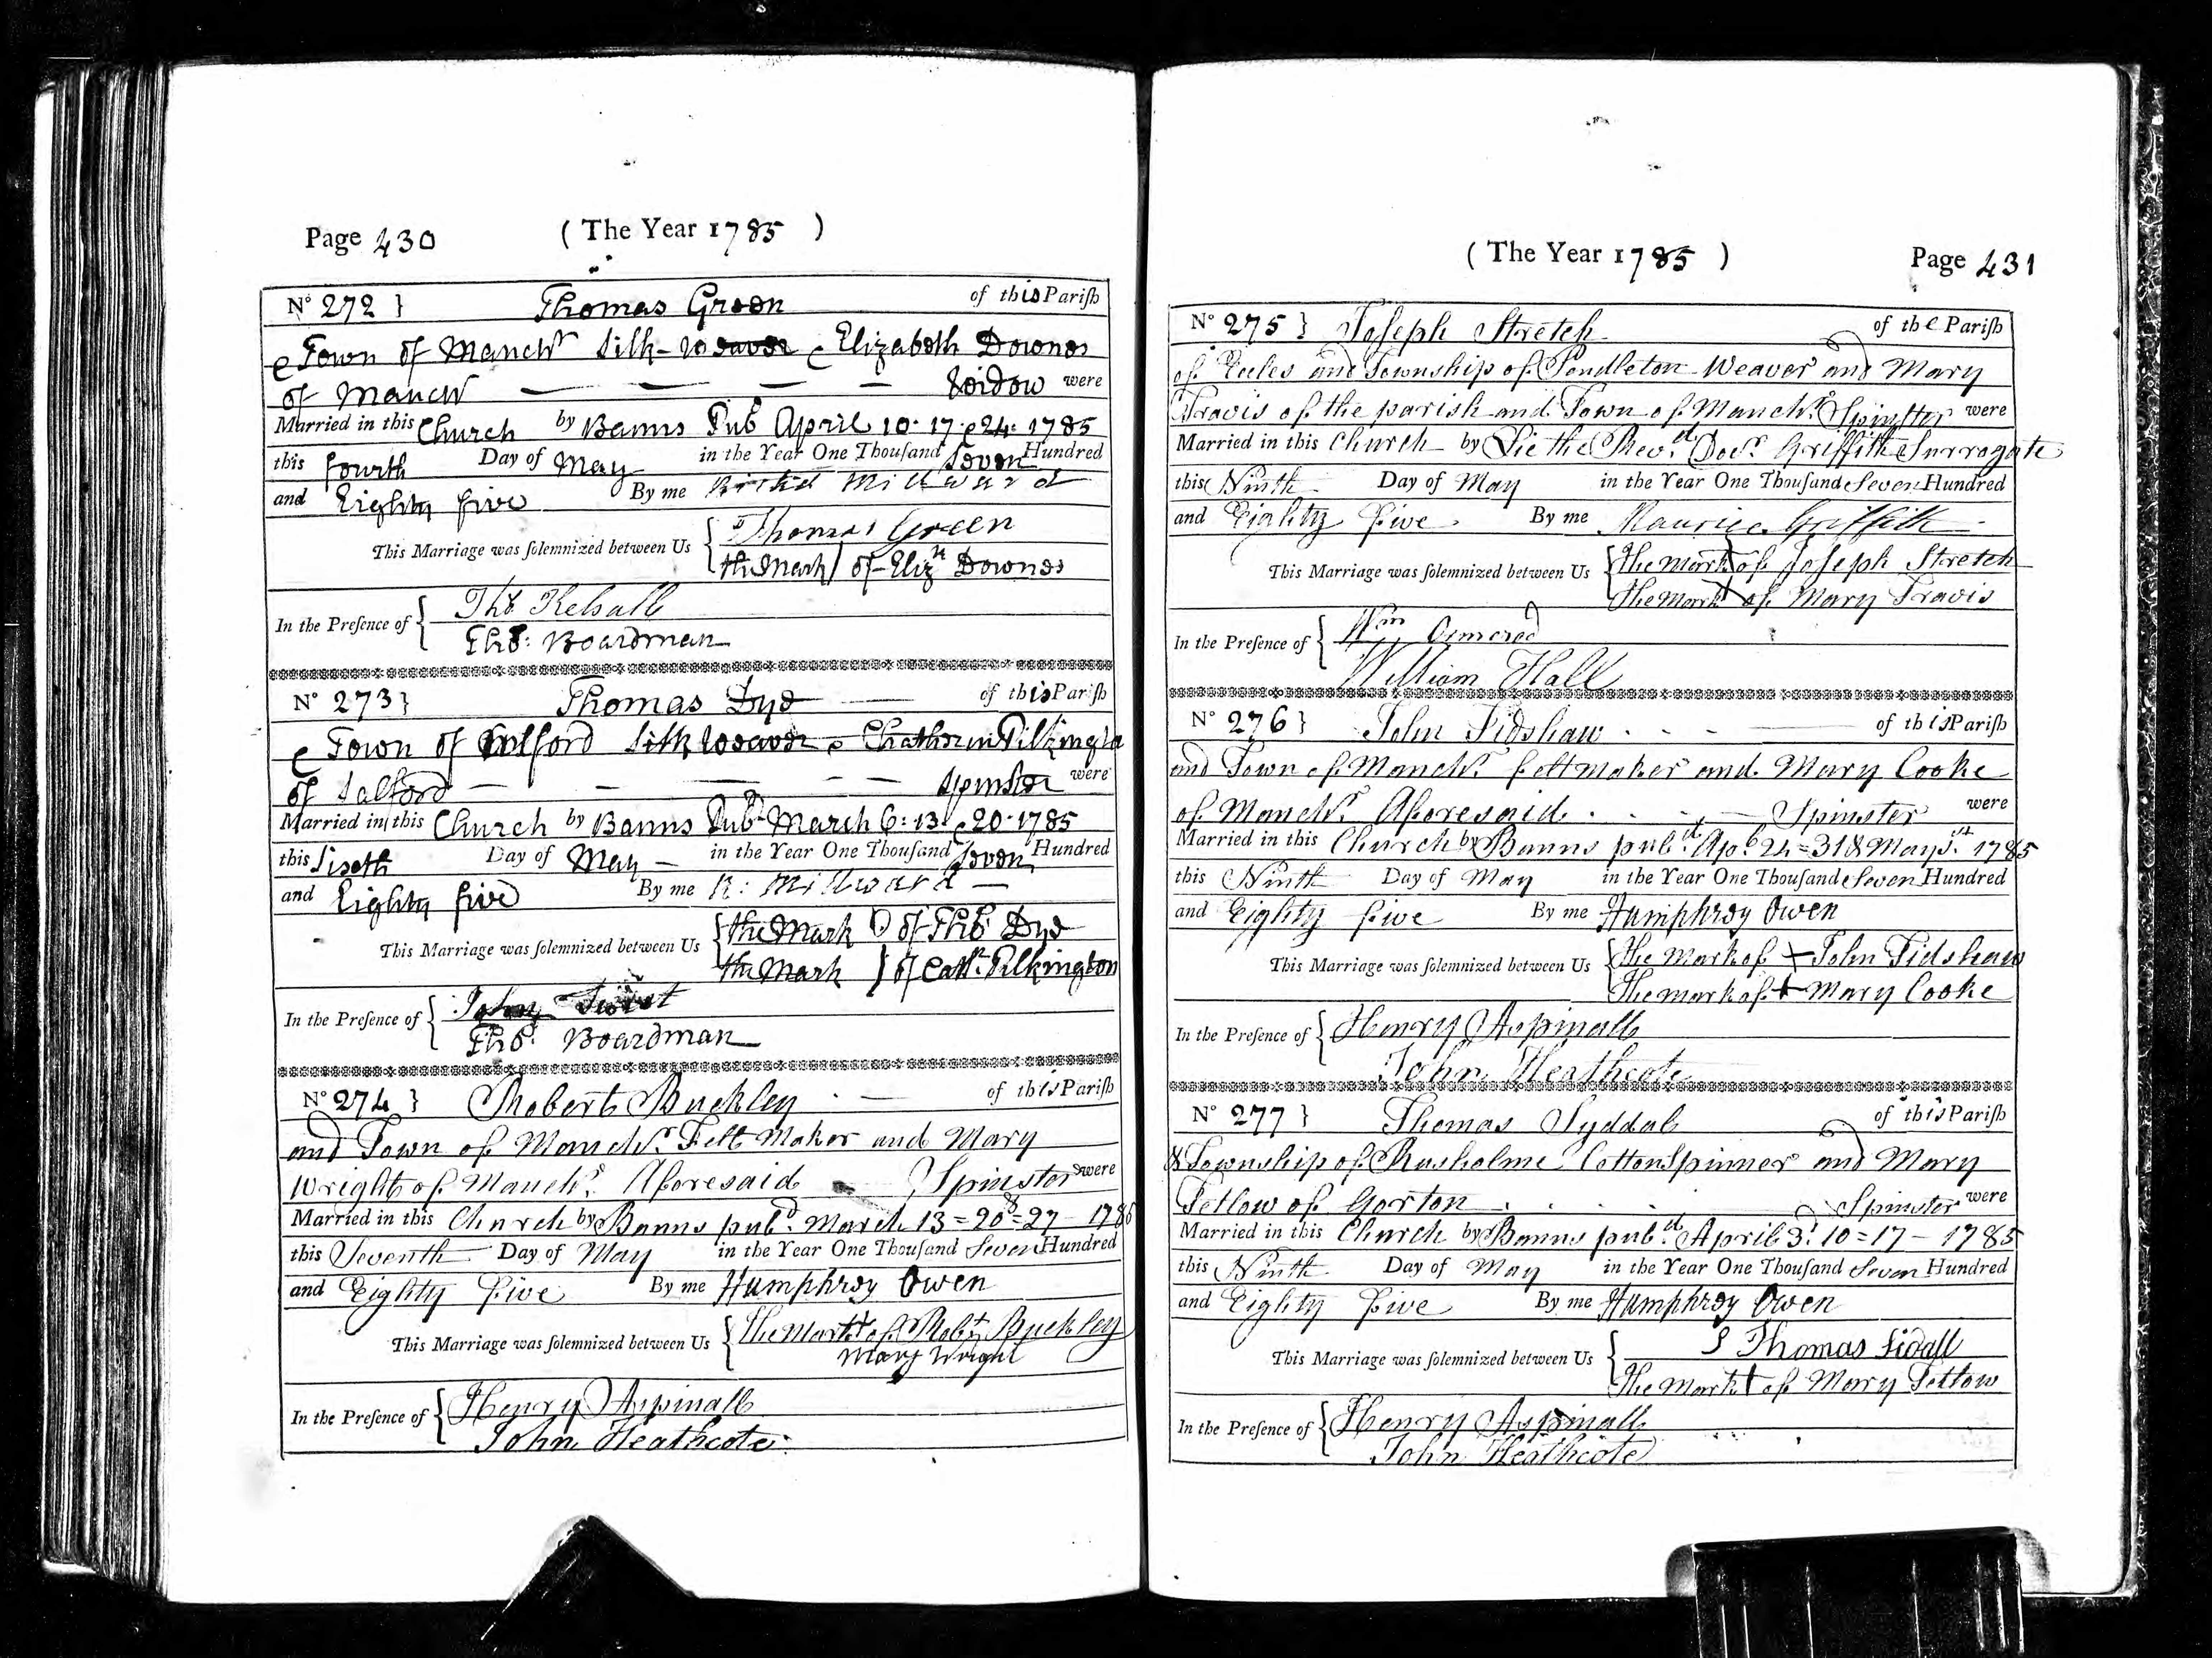 Page 430 ( The Year 1785 )
No 272 } Thomas Green of this Parish
& Town of Manchr Silk-Weaver & Elizabeth Downes
of Manchr — — — — Widow were
Married in this Church by Banns Pub April 10. 17. & 24. 1785
this fourth Day of May in the Year One Thousand Seven Hundred
and Eighty five By me Richd Millward
This Marriage was solemnized between Us { Thomas Green
the Mark / of Elizth Downes
In the Presence of { Thos Kelsall
Thos: Boardman
No 273 } Thomas Dye — of this Parish
& Town of Salford Silk Weaver & Chatherin Pilkington
of Salford — — — — — Spinster were
Married in this Church by Banns Pubd March 6: 13. & 20. 1785
this Sixth Day of May — in the Year One Thousand Seven Hundred
and Eighty five By me R: Millward —
This Marriage was solemnized between Us { the Mark ) of Thos Dye
the Mark } of Cathn Pilkington
In the Presence of { John
Thos: Boardman
No 274 } Robert Buckley . — of this Parish
and Town of Manchr. Felt Maker and Mary
Wright of Manchr. Aforesaid — Spinster were
Married in this Church by Banns pubd. March 13 = 20 & = 27 — 1785
this Seventh Day of May in the Year One Thousand Seven Hundred
and Eighty five By me Humphrey Owen
This Marriage was solemnized between Us { The Mark + of Robt Buckley
Mary Wright
In the Presence of { Henry Aspinall
John Heathcote
( The Year 1785 ) Page 431
No 275 } Joseph Stretch of the Parish
of Eccles and Township of Pendleton Weaver and Mary
Travis of the parish and Town of Manchr. Spinster were
Married in this Church by Lic the Revd. Docr. Griffith Surrogate
this Ninth Day of May in the Year One Thousand Seven Hundred
and Eighty five . By me Maurice Griffith
This Marriage was solemnized between Us { The Mark X of Joseph Stretch
The Mark X of Mary Travis
In the Presence of { Wm Ormerod
William Hall
No 276 } John Fidshaw . . - — of this Parish
and Town of Manchr. feltmaker and Mary Cooke
of Manchr. Aforesaid . . . — Spinster were
Married in this Church by Banns publd. Apl. 24 = 31 & May 1st. 1785
this Ninth Day of May in the Year One Thousand Seven Hundred
and Eighty five By me Humphrey Owen
This Marriage was solemnized between Us { The Mark of + John Fidshaw
The mark of + Mary Cooke
In the Presence of { Henry Aspinall
John Heathcote
No 277 } Thomas Syddal of this Parish
& Township of Rusholme Cotton Spinner and Mary
Tetlow of Gorton . . . . . Spinster were
Married in this Church by Banns publd. April 3. 10 = 17 — 1785
this Ninth Day of May in the Year One Thousand Seven Hundred
and Eighty five By me Humphrey Owen
This Marriage was solemnized between Us { S Thomas Sidall
The Mark + of Mary Tetlow
In the Presence of { Henry Aspinall
John Heathcote